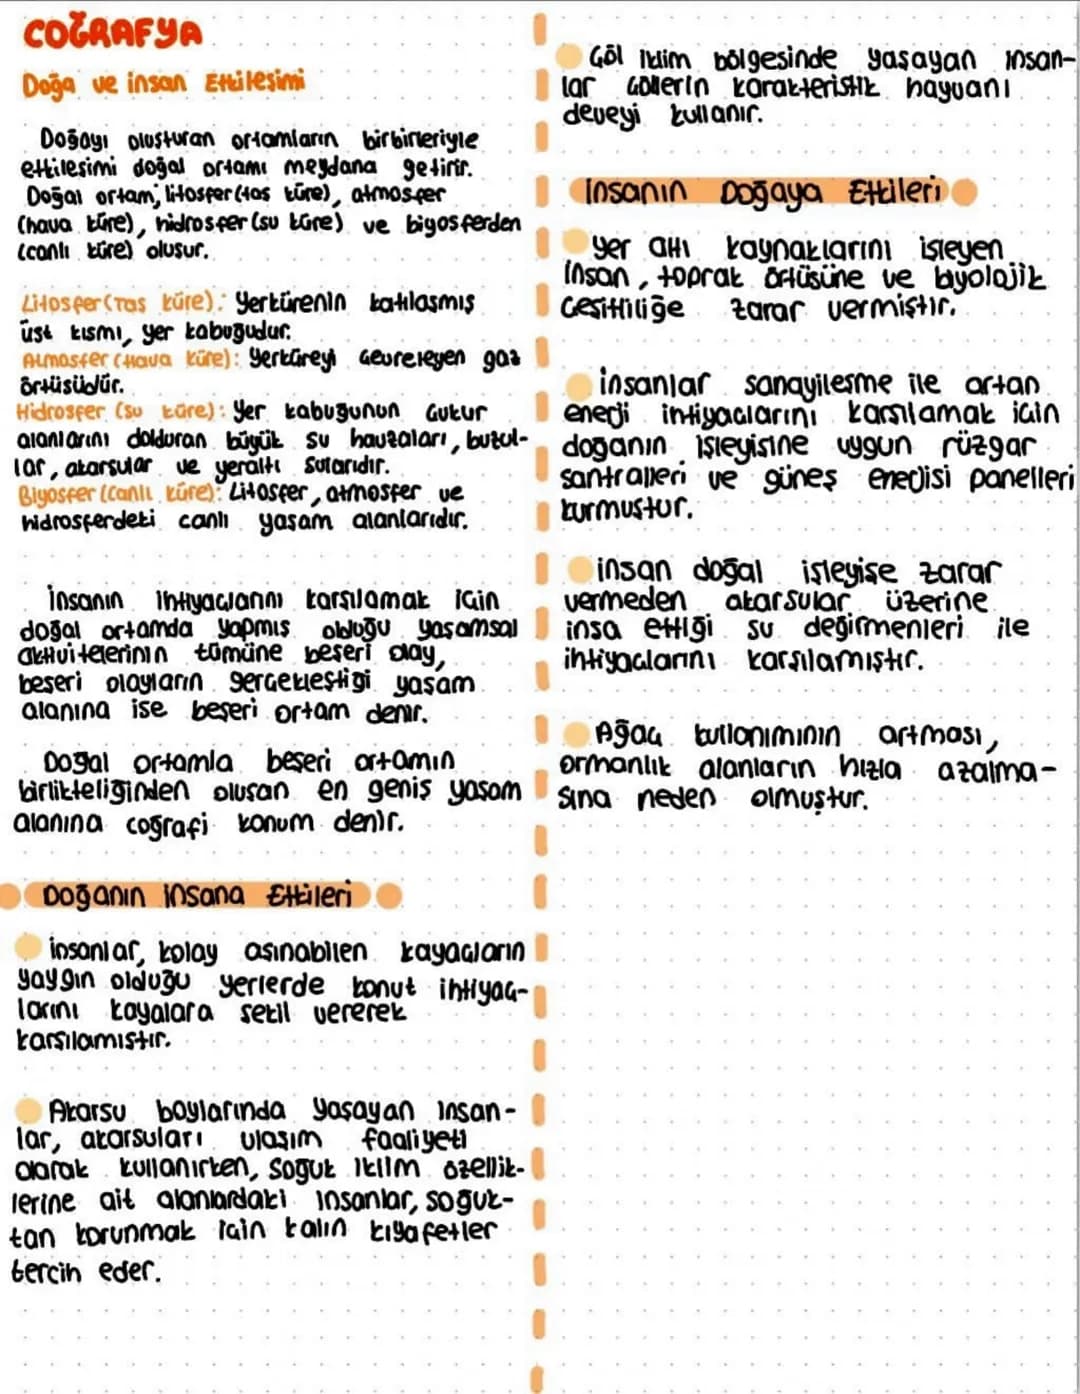 COĞRAFYA
Doğa ve insan Etkileşimi
Doğayı oluşturan ortamların birbirleriyle
etkileşimi doğal ortamı meydana getirir.
Doğal ortam; litosfer (taş küre), atmosfer
(hava küre), hidrosfer (su küre) ve biyosferden
(canlı küre) oluşur.
Litosfer (Taş küre): Yerkürenin katılaşmış
üst kısmı, yer kabuğudur.
Atmosfer (Hava küre): Yerküreyi çevreleyen gaz
örtüsüdür.
Hidrosfer (su küre): Yer kabuğunun çukur
alanlarını dolduran büyük su havzaları, buzul-
lar, akarsular ve yeraltı sularıdır.
Biyosfer (Canlı küre): Litosfer, atmosfer ve
hidrosferdeki canlı yaşam alanlarıdır.
İnsanın ihtiyaçlarını karşılamak için
doğal ortamda yapmış olduğu yaşamsal
aktivitelerinin tümüne beşeri olay,
beşeri olayların gerçekleştiği yaşam
alanına ise beşeri ortam denir.
Doğal ortamla beşeri ortamın
birlikteliğinden oluşan en geniş yaşam
alanına coğrafi konum denir.
Doğanın insana Etkileri
İnsanlar, kolay aşınabilen kayaçların
yaygın olduğu yerlerde konut ihtiyaç-
larını kayalara şekil vererek
karşılamıştır.
Akarsu boylarında yaşayan insan-
lar, akarsuları ulaşım faaliyeti
olarak kullanırken, soğuk iklim özellik-
lerine ait alanlardaki insanlar, soğuk-
tan korunmak için kalın kıyafetler
tercih eder.
Çöl iklim bölgesinde yaşayan insan-
lar çöllerin karakteristik hayvanı
deveyi kullanır.
İnsanın Doğaya Etkileri
Yer altı kaynaklarını işleyen
insan, toprak örtüsüne ve biyolojik
çeşitliliğe zarar vermiştir.
İnsanlar sanayileşme ile artan
enerji ihtiyaçlarını karşılamak için
doğanın işleyişine uygun rüzgar
santralleri ve güneş enerjisi panelleri
kurmuştur.
İnsan doğal işleyişe zarar
vermeden akarsular üzerine
inşa ettiği su değirmenleri ile
ihtiyaçlarını karşılamıştır.
Ağaç kullanımının artması,
ormanlık alanların hızla azalma-
sına neden olmuştur.